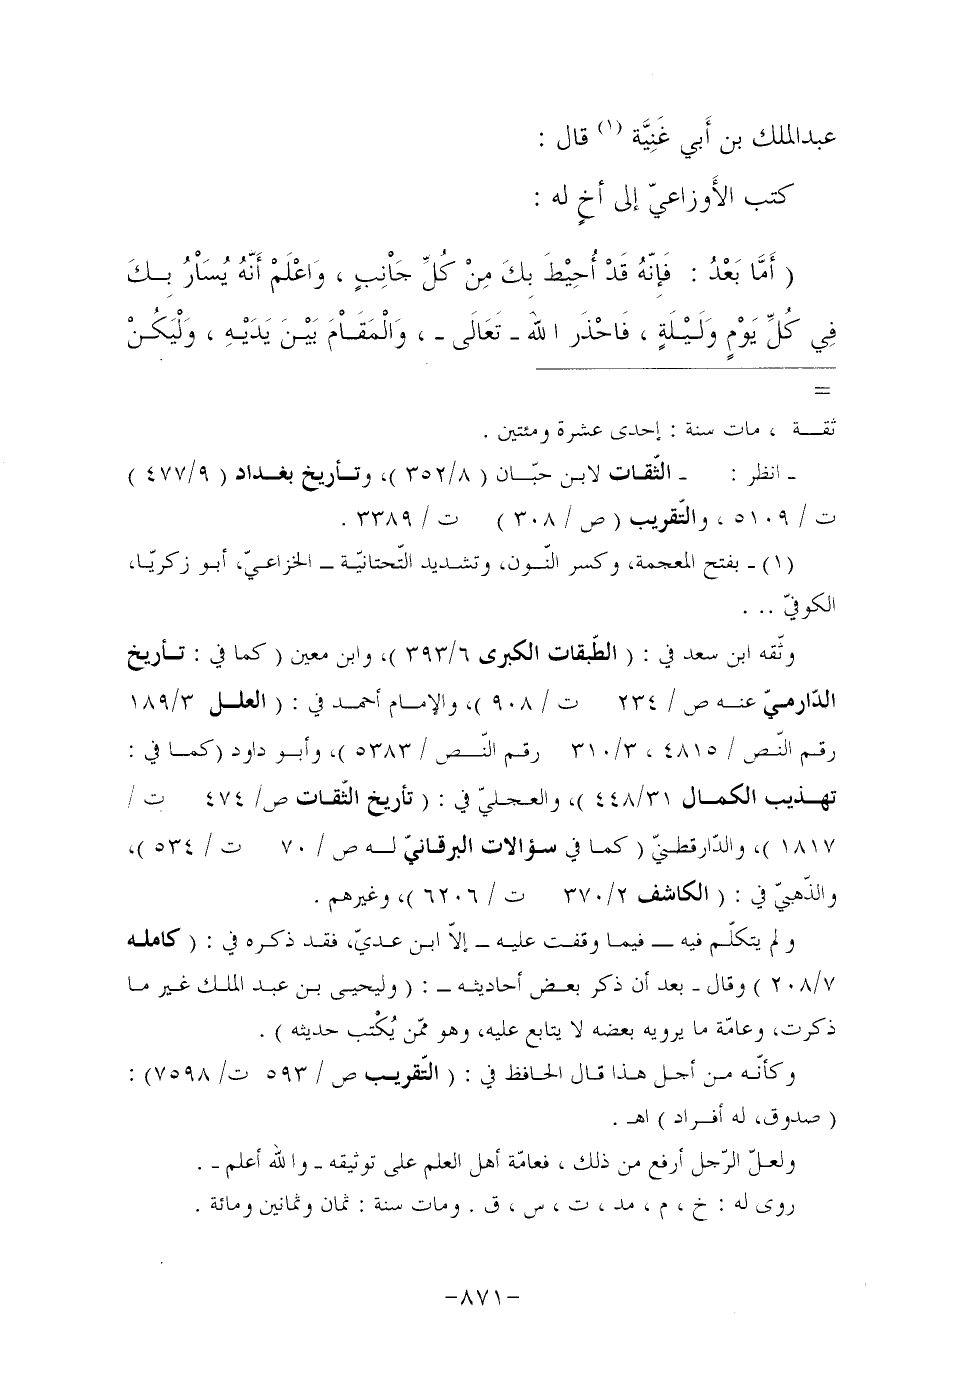 عبدالملك بن أَبي غَنِيَّة (١) قال :
كتب الأَوزاعيّ إلى أخٍ له :
( أَمَّا بَعْدُ : فَإنّهُ قَدْ أُحِيْطَ بكَ مِنْ كُلِّ جَانِبٍ ، وَاعْلَمْ أنّهُ يُسَارُ بِكَ
فِي كُلِّ يَوْمٍ وَلَيْلَةٍ ، فَاحْذَر اللهَ ـ تَعَالَى ـ ، وَالْمَقَامَ بَيْنَ يَدَيْهِ ، وَلْيَكُنْ
=
ثقـة ، مات سنة : إحدى عشرة ومئتين .
ـ انظر : ـ الثّقات لابن حبّان ( ٣٥٢/٨ )، وتأريخ بغداد ( ٤٧٧/٩ )
ت / ٥١٠٩ ، والتّقريب ( ص / ٣٠٨ ت / ٣٣٨٩ .
(١) ـ بفتح المعجمة، وكسر النّون، وتشديد التّحتانيّة ـ الخزاعيّ، أبو زكريّا،
الكوفيّ ...
وثّقه ابن سعد في : ( الطّبقات الكبرى ٣٩٣/٦ )، وابن معين ( كما في : تأريخ
الدّارميّ عنه ص / ٢٣٤ ت / ٩٠٨ )، والإمام أحمد في : ( العلل ١٨٩/٣
رقم النّص / ٤٨١٥ ، ٣١٠/٣ رقم النّص / ٥٣٨٣ )، وأبو داود (كما في :
تهذيب الكمال ٤٤٨/٣١ )، والعجليّ في : ( تأريخ الثّقات ص/ ٤٧٤ ت /
١٨١٧ )، والدّارقطنيّ ( كما في سؤالات البرقانيّ له ص / ٧٠ ت / ٥٣٤ )،
والذّهبيّ في : ( الكاشف ٣٧٠/٢ ت / ٦٢٠٦ )، وغيرهم .
ولم يتكلّم فيه ـ فيما وقفت عليه ـ إلاّ ابن عديّ، فقد ذكره في : ( كامله
٢٠٨/٧ ) وقال ـ بعد أن ذكر بعض أحاديثه ـ : ( وليحيى بن عبد الملك غير ما
ذكرت، وعامّة ما يرويه بعضه لا يتابع عليه، وهو ممّن يُكْتب حديثه ) .
وكأنّه من أجل هذا قال الحافظ في : ( التّقريب ص / ٥٩٣ ت/ ٧٥٩٨) :
( صدوق، له أفراد ) اهـ .
ولعلّ الرّجل أرفع من ذلك ، فعامّة أهل العلم على توثيقه ـ والله أعلم ـ .
روى له : خ ، م ، مد ، ت ، س ، ق . ومات سنة : ثمان وثمانين ومائة .
-٨٧١-